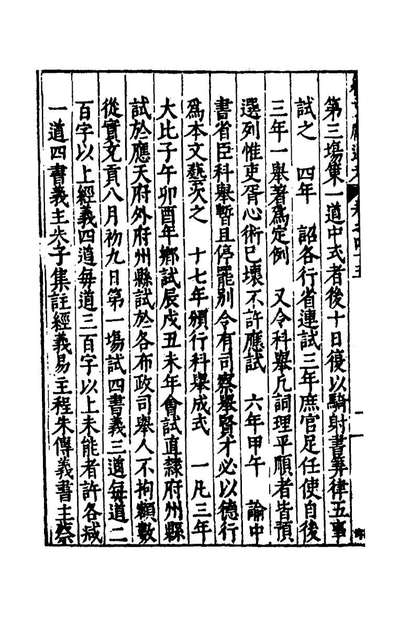 第三場策一道中式者後十日復以騎射書筭律五事
試之　四年　詔各行省連試三年庶官足任使自後
三年一舉著爲定例　又令科舉凡詞理平順者皆預
選列惟吏胥心術已壞不許應試　六年甲午　諭中
書省臣科舉暫且停罷别令有司察舉賢才必以德行
爲本文藝次之　十七年頒行科舉成式　一凡三年
大比子午卯酉年鄉試辰戌丑未年會試直隷府州縣
試於應天府外府州縣試於各布政司舉人不拘額數
從實充貢八月初九日第一場試四書義三道每道二
百字以上經義四道每道三百字以上未能者許各減
一道四書義主朱子集註經義易主程朱傳義書主蔡